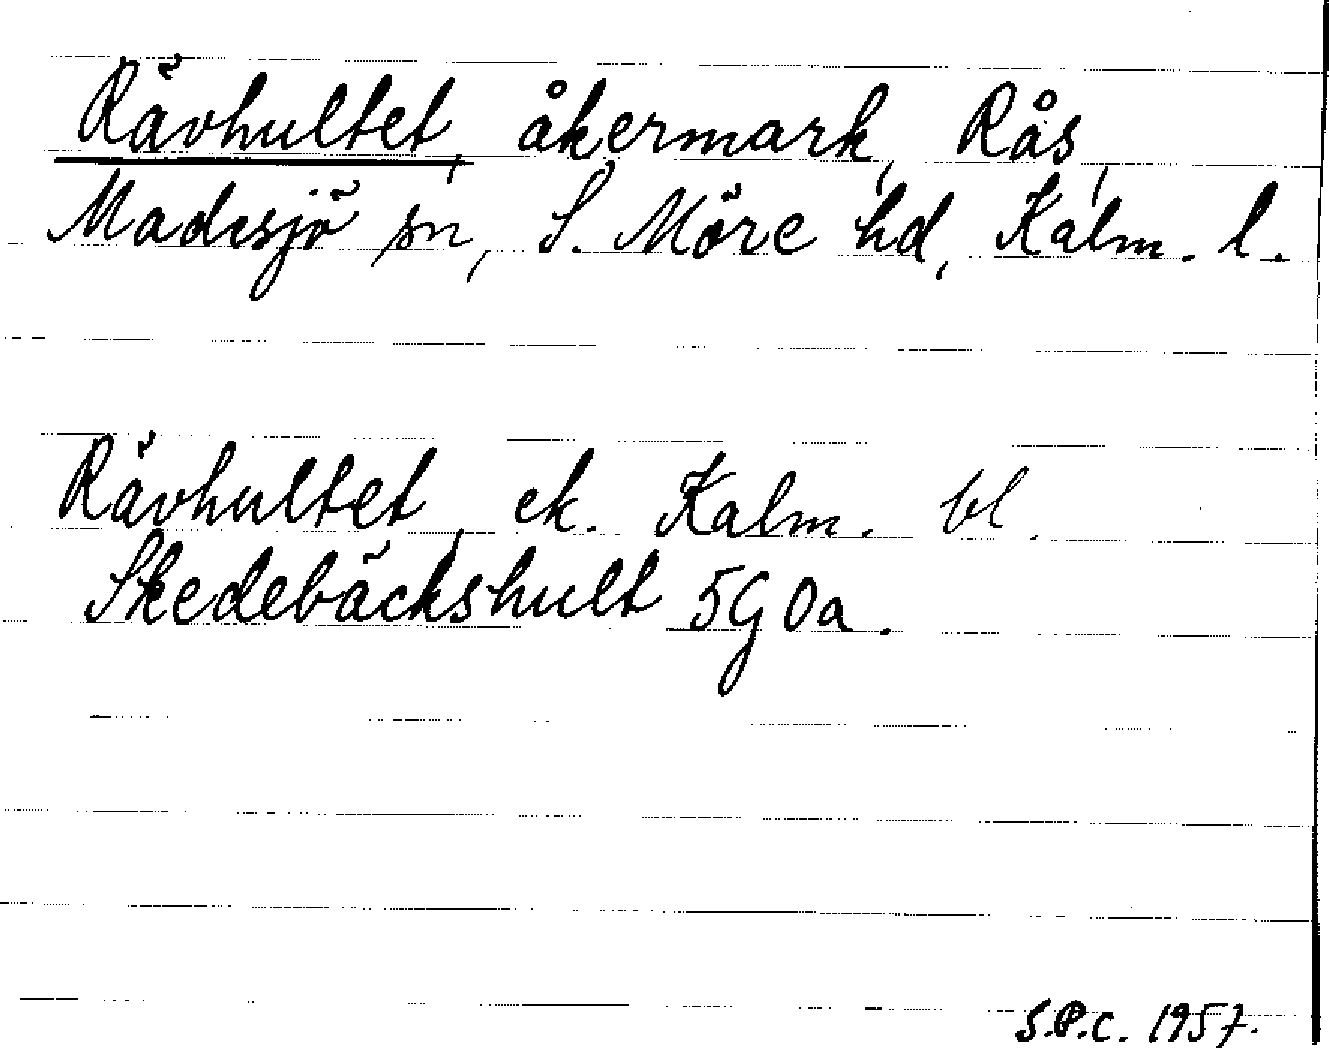 Rävhultet, åkermark, Rås,
Madesjö sn, S. Möre hd, Kalm. l.
Rävhultet, ek. Kalm. bl.
Skedebäckshult 5G0a.
S.P.C. 1957.